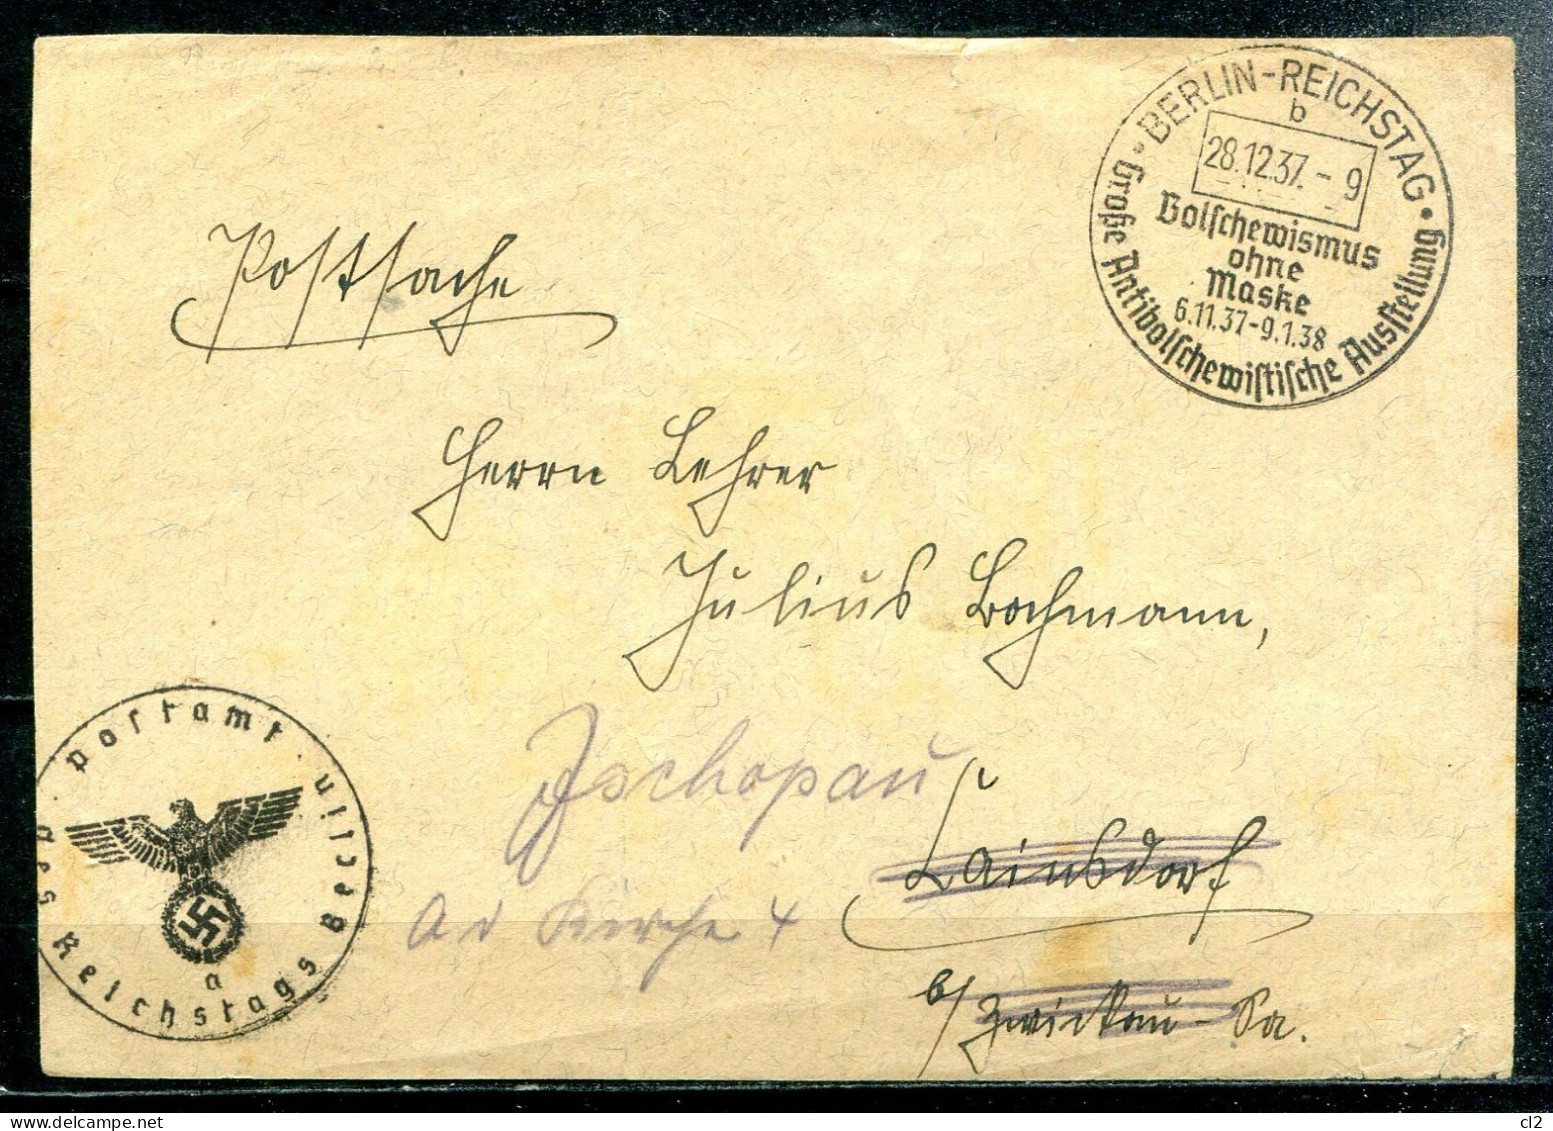 BERLIN-REICHSTAG
b
28.12.37.-9
Bolschewismus
ohne
Maske
6.11.37-9.1.38
Große Antibolschewistische Ausstellung
Postsache
Herrn Lehrer
Julius Bochmann,
Zschopau
Lainsdorf
Ad Kirche 4
b/ Zwickau-Sa.
Postamt Berlin
des Reichstags
a
delcampe.net
cl2